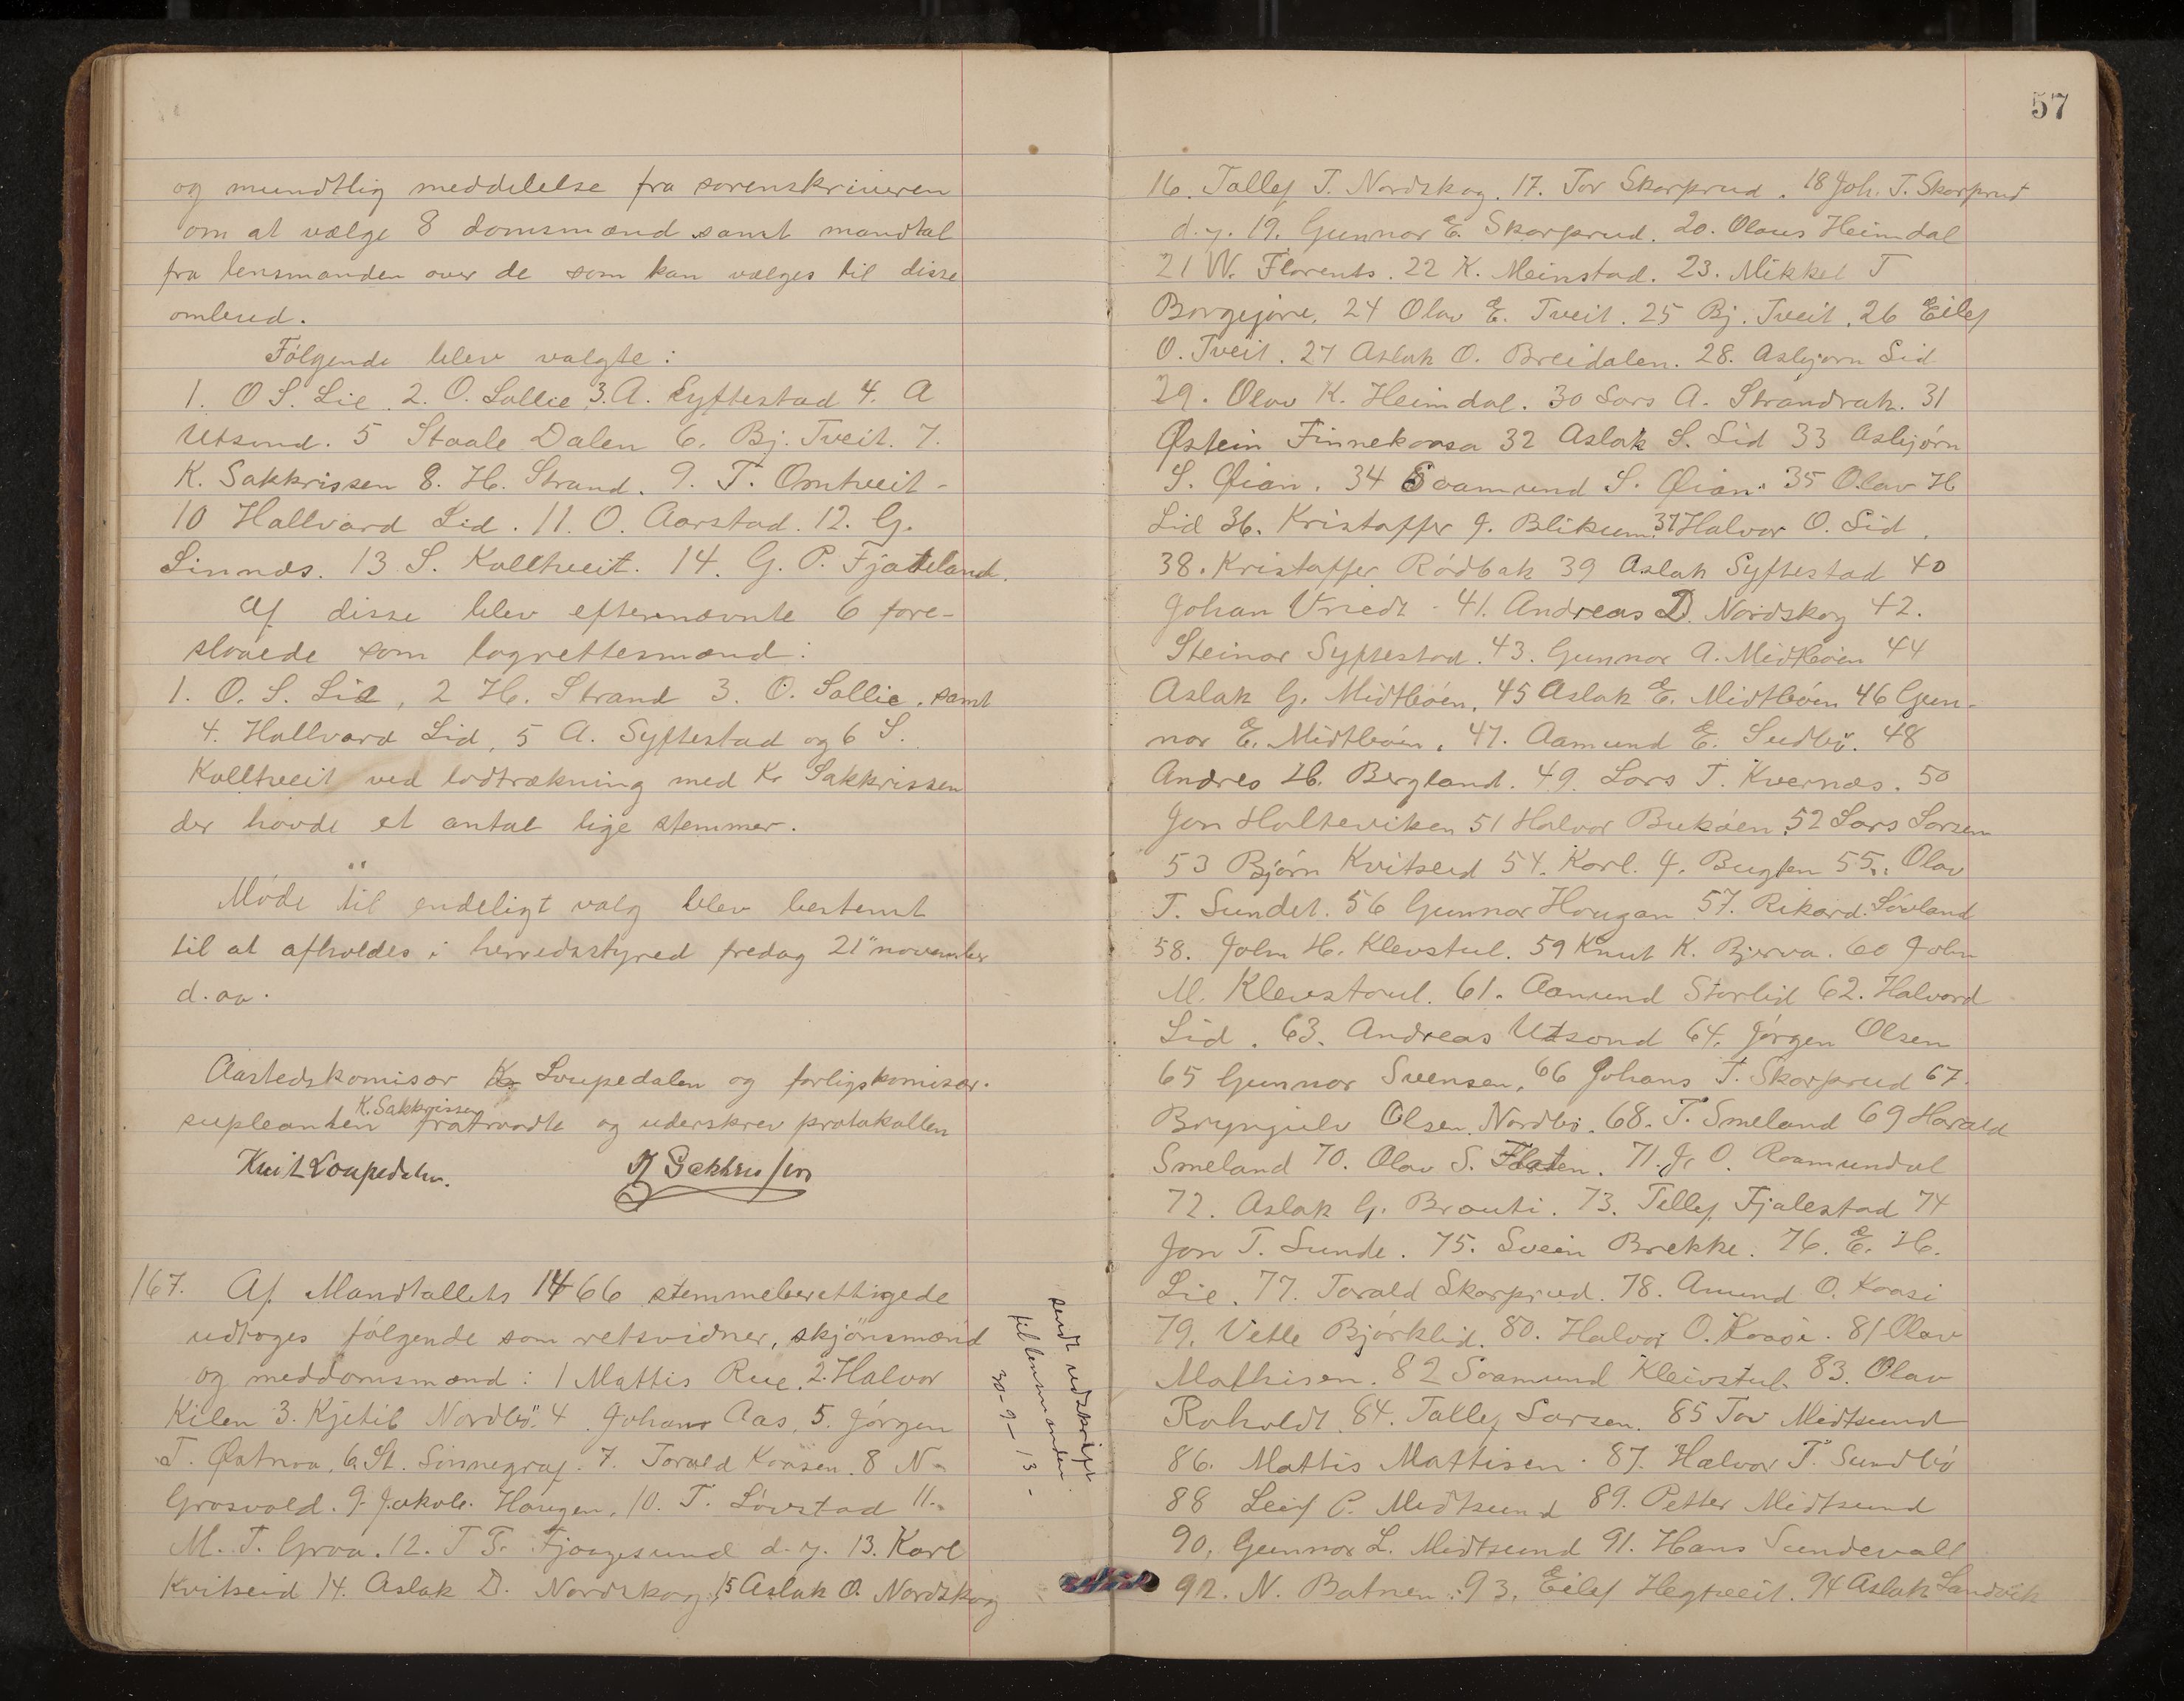 og mundtlig meddelelse fra sorenskriveren
om at vælge 8 domsmænd samt mandtal
fra lensmanden over de som kan vælges til disse
ombud.
Følgende blev valgte:
1. O S. Lie. 2. O. Lallie 3. A. Syftestad 4. A
Utsund. 5 Staale Dalen 6. Bj. Tveit. 7.
K. Sakkrissen 8. H. Strand. 9. T. Omtveit -
10 Hallvard Lid. 11. O. Aarstad. 12. G.
Linnæs. 13 S. Kolltveit. 14. G. P. Fjateland.
Af disse blev efternævnte 6 fore-
slaaede som lagrettesmænd:
1. O. S. Lie, 2 H. Strand 3. O. Lallie, samt
4. Hallvard Lid, 5 A. Syftestad og 6 S.
Kolltveit ved lodtrækning med K. Sakkrissen
der havde et antal lige stemmer.
Møde til endeligt valg blev bestemt
til at afholdes i herredsstyred fredag 21" november
d. aa.
Aastedskomisær K. Loupedalen og forligskomisær-
supleanten K. Sakkrissen fratraadte og uderskrev protokollen
Knit Loupedalen. K Sakkrissen
167. Af Mandtallets 1466 stemmeberettigede
udtoges følgende som retsvidner, skjønsmænd
og meddomsmænd: 1 Mattis Rue. 2. Halvor
Kilen 3. Kjetil Nordbø. 4. Johans Aas, 5. Jørgen
T. Østmoa, 6. St. Sinnegraf. 7. Torald Kaasen. 8 N.
Grosvold. 9. Jakob. Haugen, 10. T. Løvstad 11.
M. T. Groa. 12. T T. Fjaagesund d. y. 13. Karl
Kvitseid 14. Aslak D. Nordskog, 15 Aslak O. Nordskog
sendt udskrift
til lensmanden
30-9-13-
57
16. Tallef T. Nordskog. 17. Tor Skarprud. 18 Joh. T. Skarprud
d. y. 19. Gunnar E. Skarprud. 20. Olaus Heimdal
21 W. Florents. 22 K. Meinstad. 23. Mikkel T
Borgejøre, 24 Olav E. Tveit. 25 Bj. Tveit. 26 Eilef
O. Tveit. 27 Aslak O. Breidalen. 28. Asbjørn Lid
29. Olav K. Heimdal. 30 Lars A. Strandrak. 31
Østein Finnekaasa 32 Aslak S. Lid 33 Asbjørn
S. Øian. 34 Saamund S. Øian. 35 Olav H
Lid 36. Kristaffer J. Blikum. 37 Halvor O. Lid.
38. Kristaffer Rødbak 39 Aslak Syftestad 40
Johan Vriedt. 41. Andreas D. Nordskog 42.
Steinar Syftestad. 43. Gunnar A. Midtbøen 44
Aslak G. Midtbøen, 45 Aslak E. Midtbøen 46 Gun-
nar E. Midtbøen, 47. Aamund E. Sudbø. 48
Andres H. Bergland. 49. Lars T. Kvernæs. 50
Jon Holteviken 51 Halvor Bukøen. 52 Lars Larsen
53 Bjørn Kvitseid 54. Karl. J. Bugten 55. Olav
T. Sundet. 56 Gunnar Haugan 57. Rikard. Løvland
58. John H. Klevstul. 59 Knut K. Bjerva. 60 John
M. Klevstoul. 61. Aamund Storlid 62. Halvord
Lid. 63. Andreas Utsond 64. Jørgen Olsen
65 Gunnar Svensen, 66 Johans T. Skarprud 67.
Bryngulv Olsen. Nordbø. 68. T. Smeland 69 Harald
Smeland 70. Olav S. Flaten. 71. J. O. Raamundal
72. Aslak G. Brauti. 73. Tellef Fjalestad 74
Jon T. Sunde. 75. Svein Brekke. 76. E. H.
Lie. 77. Torald Skarprud. 78. Amund O. Kaasi
79. Vetle Bjørklid. 80. Halvor O. Kaasi. 81 Olav
Mathisen. 82 Saamund Kleivstul. 83. Olav
Roholdt. 84. Tallef Larsen. 85 Tov Midtsund
86. Mattis Mattisen. 87. Halvor T. Sundbø
88 Leif P. Midtsund 89. Petter Midtsund
90. Gunnar L. Midtsund 91. Hans Sundevall
92. N. Batnen. 93. Eilef Hegtveit. 94 Aslak Landvik